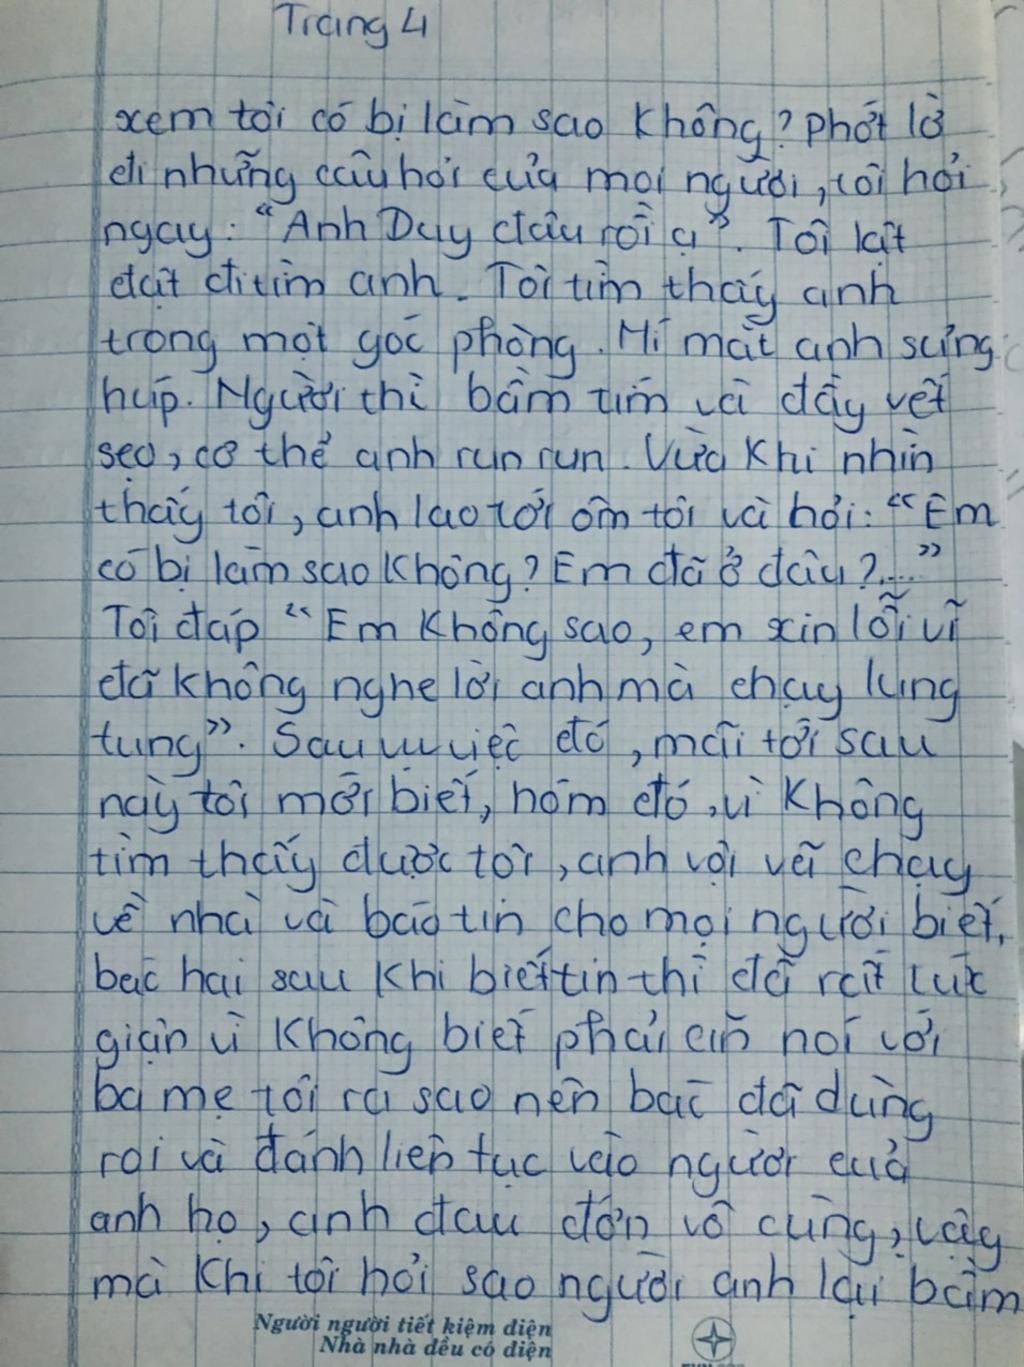 Trang 4
xem tôi có bị làm sao không? phớt lờ
đi những câu hỏi của mọi người, tôi hỏi
ngay: "Anh Duy đâu rồi ạ". Tôi lật
đật đi tìm anh. Tôi tìm thấy anh
trong một góc phòng. Mí mắt anh sưng
húp. Người thì bầm tím và đầy vết
sẹo, cơ thể anh run run. Vừa khi nhìn
thấy tôi, anh lao tới ôm tôi và hỏi: "Em
có bị làm sao không? Em đã ở đâu?...."
Tôi đáp "Em không sao, em xin lỗi vì
đã không nghe lời anh mà chạy lung
tung". Sau vụ việc đó, mãi tới sau
này tôi mới biết, hôm đó, vì không
tìm thấy được tôi, anh vội vã chạy
về nhà và báo tin cho mọi người biết,
bác hai sau khi biết tin thì đã rất tức
giận vì không biết phải ăn nói với
ba mẹ tôi ra sao nên bác đã dùng
roi và đánh liên tục vào người của
anh họ, anh đau đớn vô cùng, vậy
mà khi tôi hỏi sao người anh lại bầm
Người người tiết kiệm điện
Nhà nhà đều có điện